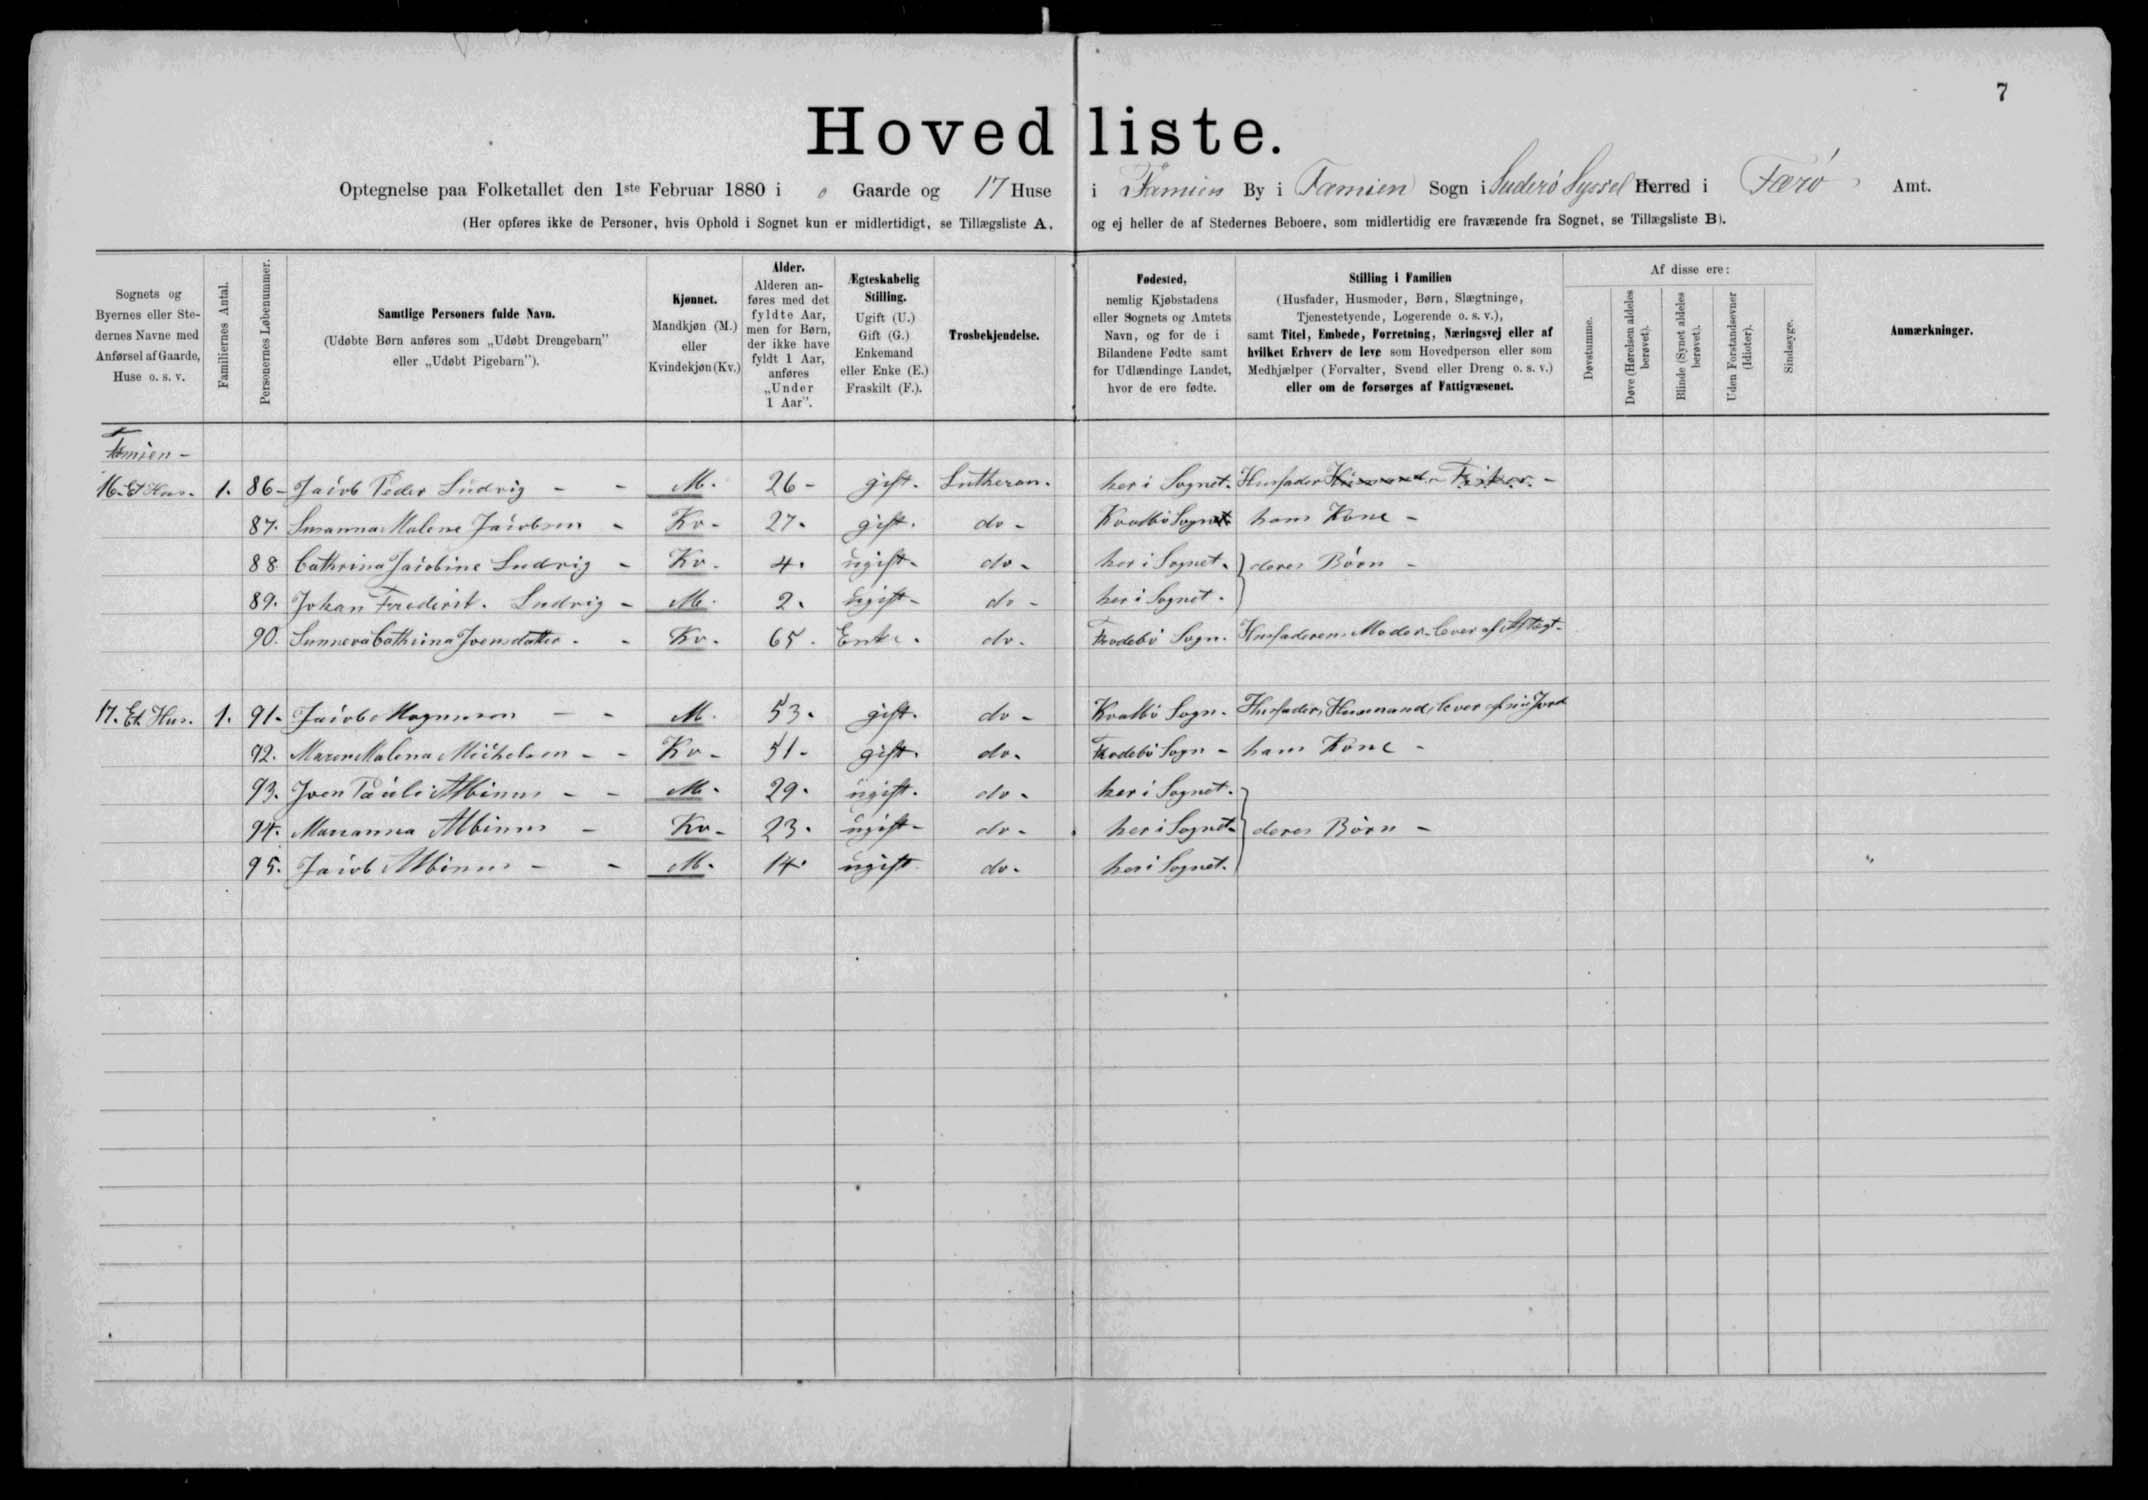 7
Hovedliste.
Optegnelse paa Folketallet den 1ste Februar 1880 i 0 Gaarde og 17 Huse i Famien By i Famien Sogn i Suderö Syssel Herred i Færö Amt.
(Her opføres ikke de Personer, hvis Ophold i Sognet kun er midlertidigt, se Tillægsliste A, og ej heller de af Stedernes Beboere, som midlertidig ere fraværende fra Sognet, se Tillægsliste B).
Sognets og
Byernes eller Ste-
dernes Navne med
Anførsel af Gaarde,
Huse o. s. v.
Familiernes Antal.
Personernes Løbenummer.
Samtlige Personers fulde Navn.
(Udøbte Børn anføres som „Udøbt Drengebarn"
eller „Udøbt Pigebarn").
Kjønnet.
Mandkjøn (M.)
eller
Kvindekjøn (Kv.)
Alder.
Alderen an-
føres med det
fyldte Aar,
men for Børn,
der ikke have
fyldt 1 Aar,
anføres
„Under
1 Aar".
Ægteskabelig
Stilling.
Ugift (U.)
Gift (G.)
Enkemand
eller Enke (E.)
Fraskilt (F.).
Trosbekjendelse.
Fødested,
nemlig Kjøbstadens
eller Sognets og Amtets
Navn, og for de i
Bilandene Fødte samt
for Udlændinge Landet,
hvor de ere fødte.
Stilling i Familien
(Husfader, Husmoder, Børn, Slægtninge,
Tjenestetyende, Logerende o. s. v.),
samt Titel, Embede, Forretning, Næringsvej eller af
hvilket Erhverv de leve som Hovedperson eller som
Medhjælper (Forvalter, Svend eller Dreng o. s. v.)
eller om de forsørges af Fattigvæsenet.
Af disse ere:
Døvstumme.
Døve (Hørelsen aldeles
berøvet).
Blinde (Synet aldeles
berøvet).
Uden Forstandsevner
(Idioter).
Sindssyge.
Anmærkninger.
Famien -
16. Et Hus. 1. 86 - Jacob Peder Ludvig - - M. 26 - gift. Lutheran. her i Sognet. Husfader Husmand - Fisker. -
87. Susanna Malene Jacobsen - Kv. 27. gift. do - Kvalbö Sogn hans Kone -
88 Cathrina Jacobine Ludvig - Kv. 4. ugift - do - her i Sognet. deres Börn -
89. Johan Frederik. Ludvig - M. 2. ugift - do - her i Sognet.
90. Sunneva Cathrina Joensdatter. - Kv. 65. Enke. do. Frodebö Sogn. Husfaderens Moder - lever af Aftægt -
17. Et Hus. 1. 91 - Jacob Magnussen - - M. 53. gift. do - Kvalbö Sogn. Husfader, Husmand, lever af sin Jord
92. Maren Malena Michelsen - - Kv - 51 - gift. do. Frodebö Sogn - hans Kone -
93. Joen Pauli Albinus - - M. 29. ugift. do. her i Sognet.
94. Marianna Albinus - Kv - 23. ugift - do - her i Sognet. deres Börn -
95. Jacob Albinus - - M. 14. ugift do. her i Sognet.